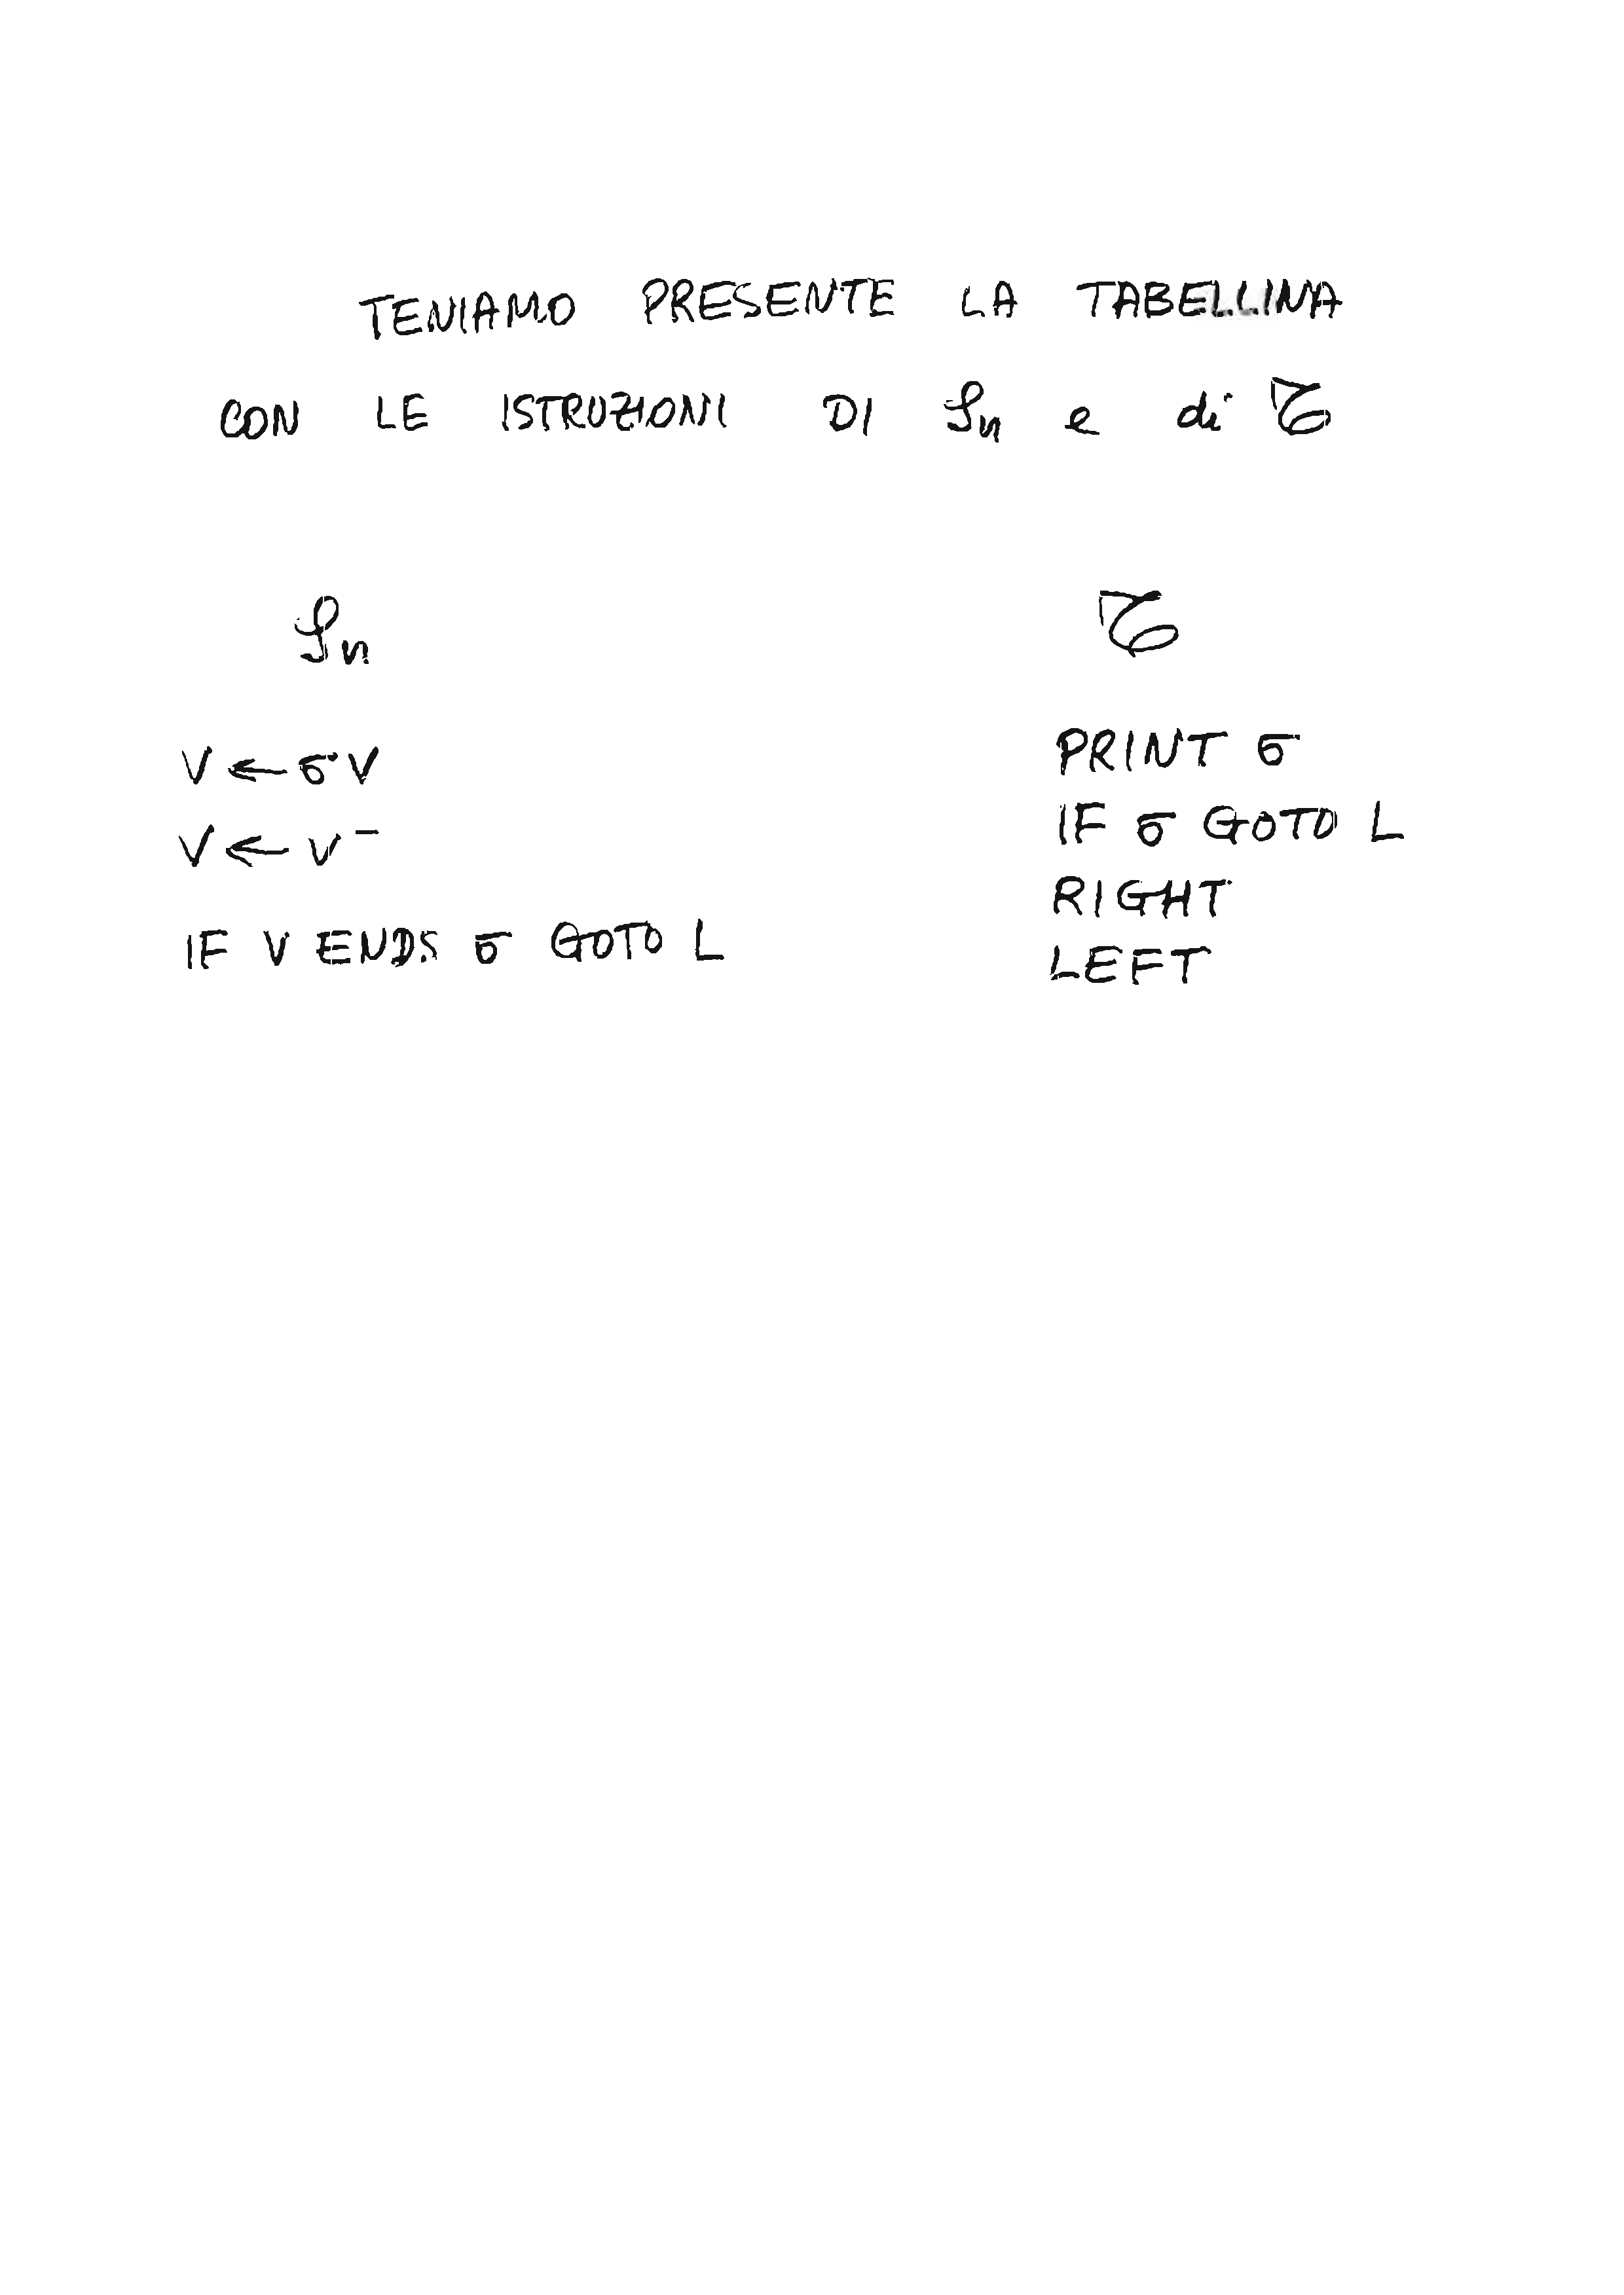 TENIAMO PRESENTE LA TABELLINA
CON LE ISTRUZIONI DI 𝒮n e di 𝒯
𝒮n
V ← σV
V ← V⁻
IF V ENDS σ GOTO L
𝒯
PRINT σ
IF σ GOTO L
RIGHT
LEFT